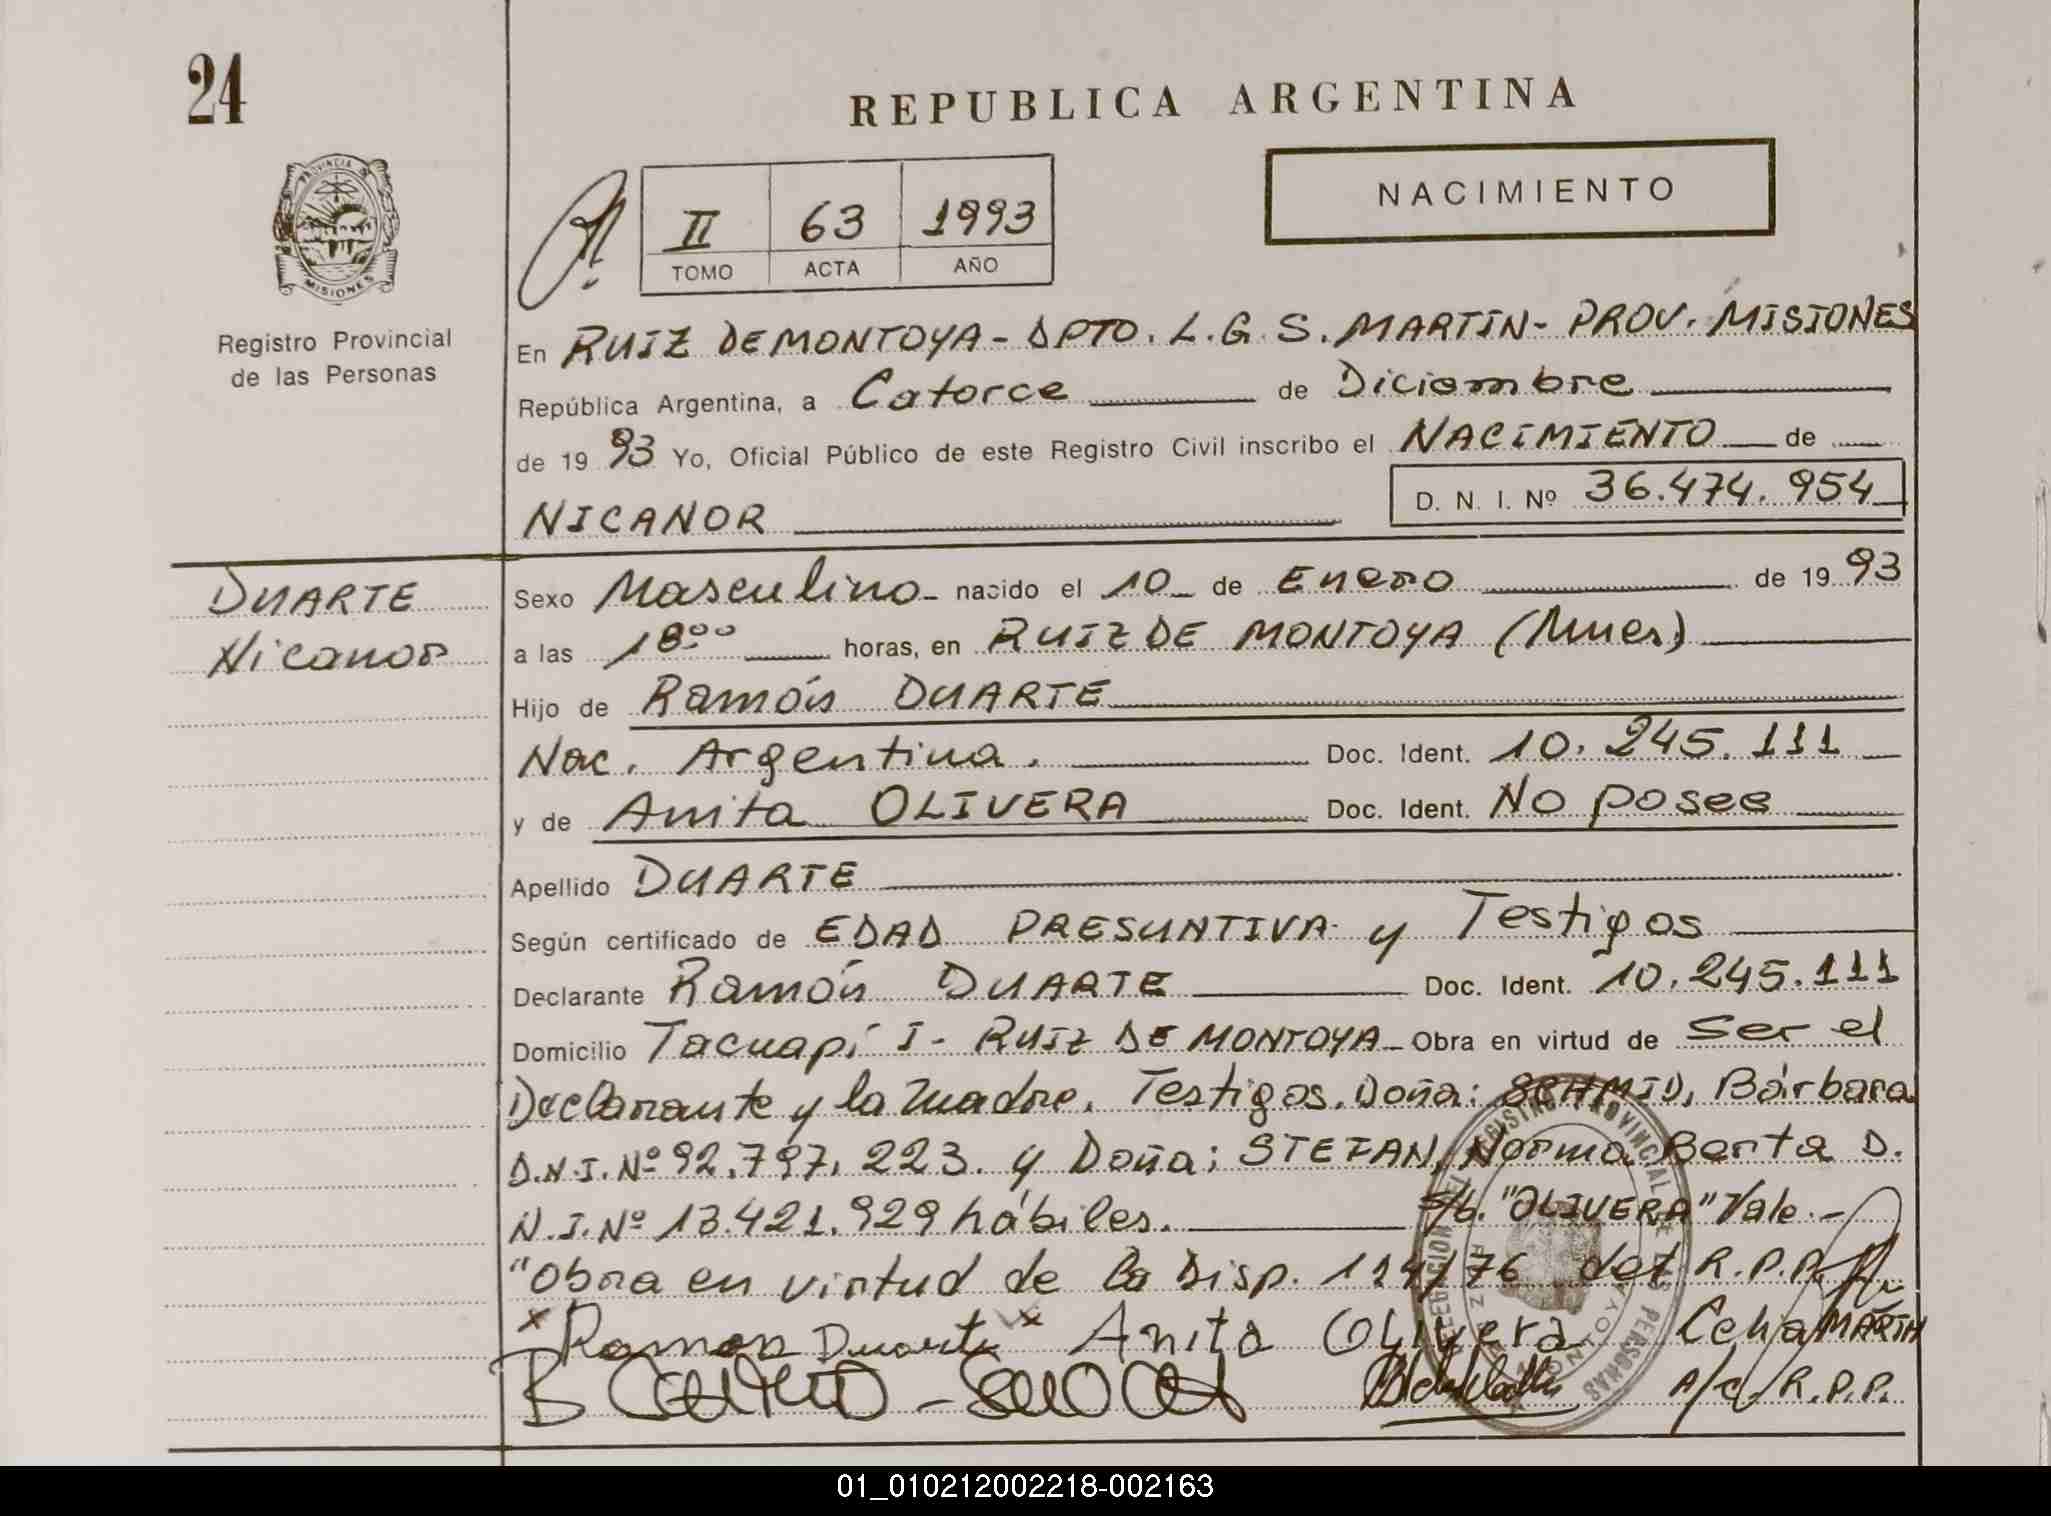 24
REPUBLICA ARGENTINA
PROVINCIA DE
MISIONES
NACIMIENTO
II 63 1993
TOMO ACTA AÑO
Registro Provincial
de las Personas
En RUIZ DE MONTOYA - DPTO. L.G.S. MARTIN - PROV. MISIONES
República Argentina, a Catorce de Diciembre
de 19 93 Yo, Oficial Público de este Registro Civil inscribo el NACIMIENTO de
NICANOR D. N. I. Nº 36.474.954
DUARTE
Nicanor
Sexo Masculino nacido el 10 de Enero de 19 93
a las 18:00 horas, en RUIZ DE MONTOYA (Mnes)
Hijo de Ramón DUARTE
Nac. Argentina. Doc. Ident. 10.245.111
y de Anita OLIVERA Doc. Ident. No posee
Apellido DUARTE
Según certificado de EDAD PRESUNTIVA y Testigos
Declarante Ramón DUARTE Doc. Ident. 10.245.111
Domicilio Tacuapí I - RUIZ DE MONTOYA - Obra en virtud de Ser el
Declarante y la madre. Testigos, Doña: SCHMID, Bárbara
D.N.I. Nº 92.797.223. y Doña: STEFAN, Norma Berta D.
N.I. Nº 13.421.929 hábiles. S/b. "OLIVERA" Vale.-
"Obra en virtud de la Disp. 114/76 del R.P.P.
x Ramon Duarte x Anita Olivera Celia MARTIN
A/c. R.P.P.
DELEGACION DEL REGISTRO PROVINCIAL DE LAS PERSONAS
RUIZ DE MONTOYA
01_010212002218-002163